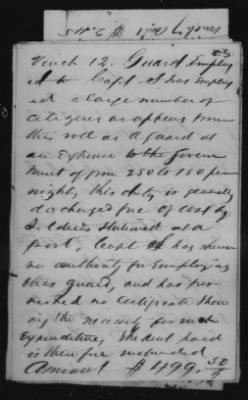 Vouch 12. Guard Employ
ed to Capt S has employ
ed a large number of
citizens as appears from
this roll as a guard at
an Expense to the Govern
ment of from 250 to 150 per
night, this duty is generally
discharged free of cost by
Soldiers stationed at a
post, Capt S has shown
no authority for Employing
this guard, and has fur
nished no Certificate show
ing the necessity for such
Expenditure, the amt paid
is therefore suspended
Amount $499.50